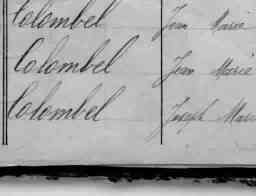 Colombel Jean Marie
Colombel Jean Marie
Colombel Joseph Mari